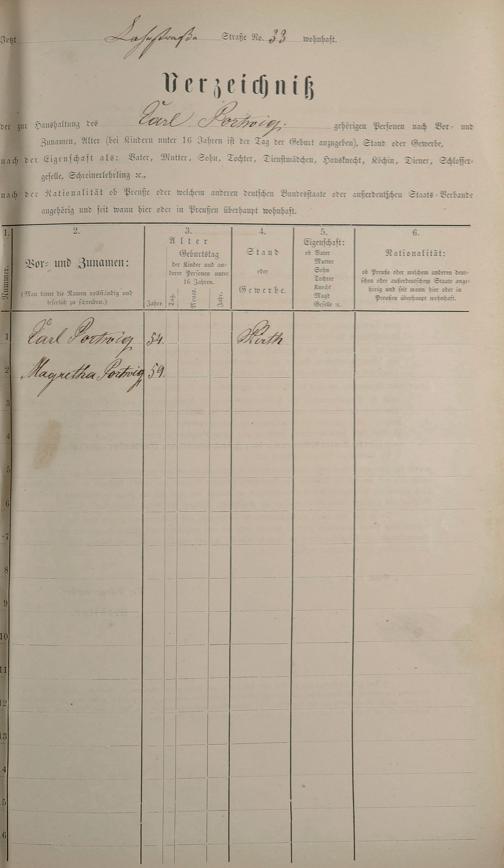 Jetzt Lahnstraße Straße No. 33 wohnhaft.
Verzeichniß
der zur Haushaltung des Carl Portwig gehörigen Personen nach Vor- und
Zunamen, Alter (bei Kindern unter 16 Jahren ist der Tag der Geburt anzugeben), Stand oder Gewerbe,
nach der Eigenschaft als: Vater, Mutter, Sohn, Tochter, Dienstmädchen, Hausknecht, Köchin, Diener, Schlosser-
geselle, Schreinerlehrling ꝛc.,
nach der Nationalität ob Preuße oder welchem anderen deutschen Bundesstaate oder außerdeutschen Staats-Verbande
angehörig und seit wann hier oder in Preußen überhaupt wohnhaft.
1. 2. 3. 4. 5. 6.
Nummer.
Vor- und Zunamen:
(Man bittet die Namen vollständig und
leserlich zu schreiben.)
Alter
Geburtstag
der Kinder und an-
deren Personen unter
16 Jahren.
Jahre. Tag. Monat. Jahr.
Stand
oder
Gewerbe.
Eigenschaft:
ob Vater
Mutter
Sohn
Tochter
Knecht
Magd
Geselle ꝛc.
Nationalität:
ob Preuße oder welchem anderen deut-
schen oder außerdeutschen Staate ange-
hörig und seit wann hier oder in
Preußen überhaupt wohnhaft.
1 Carl Portwig 54. Wirth
2 Magretha Portwig 59.
3
4
5
6
7
8
9
10
11
12
13
4
5
6